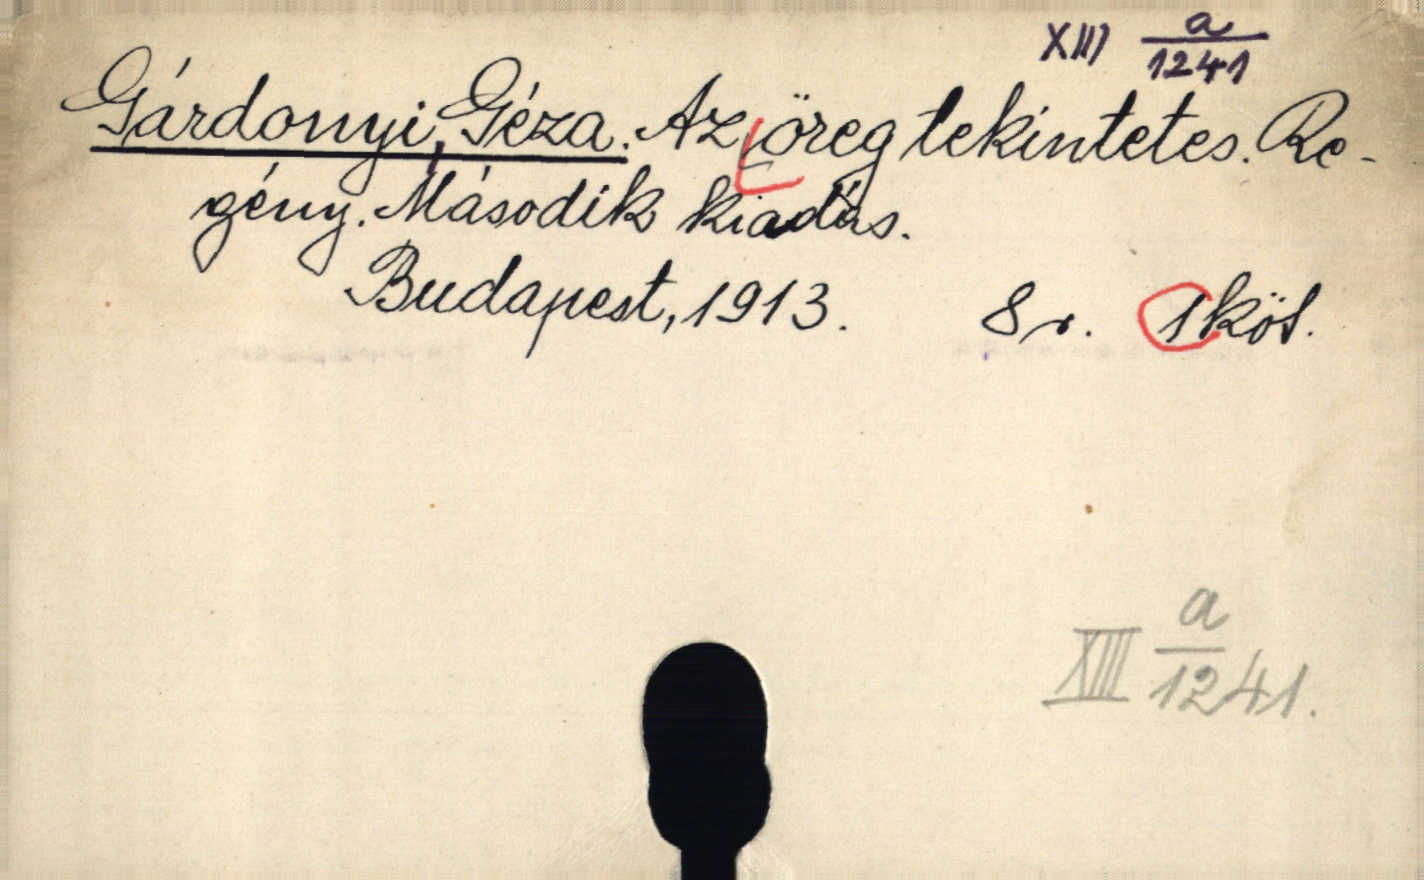 XIII a
1241
Gárdonyi, Géza. Az öreg tekintetes. Re-
gény. Második kiadás.
Budapest, 1913. 8 r. 1 köt.
XIII a
1241.